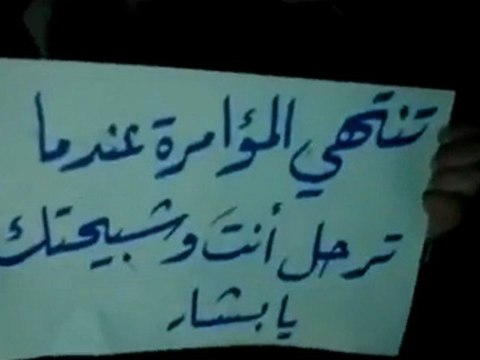 تنتهي المؤامرة عندما
ترحل أنتَ وشبيحتك
يا بشار